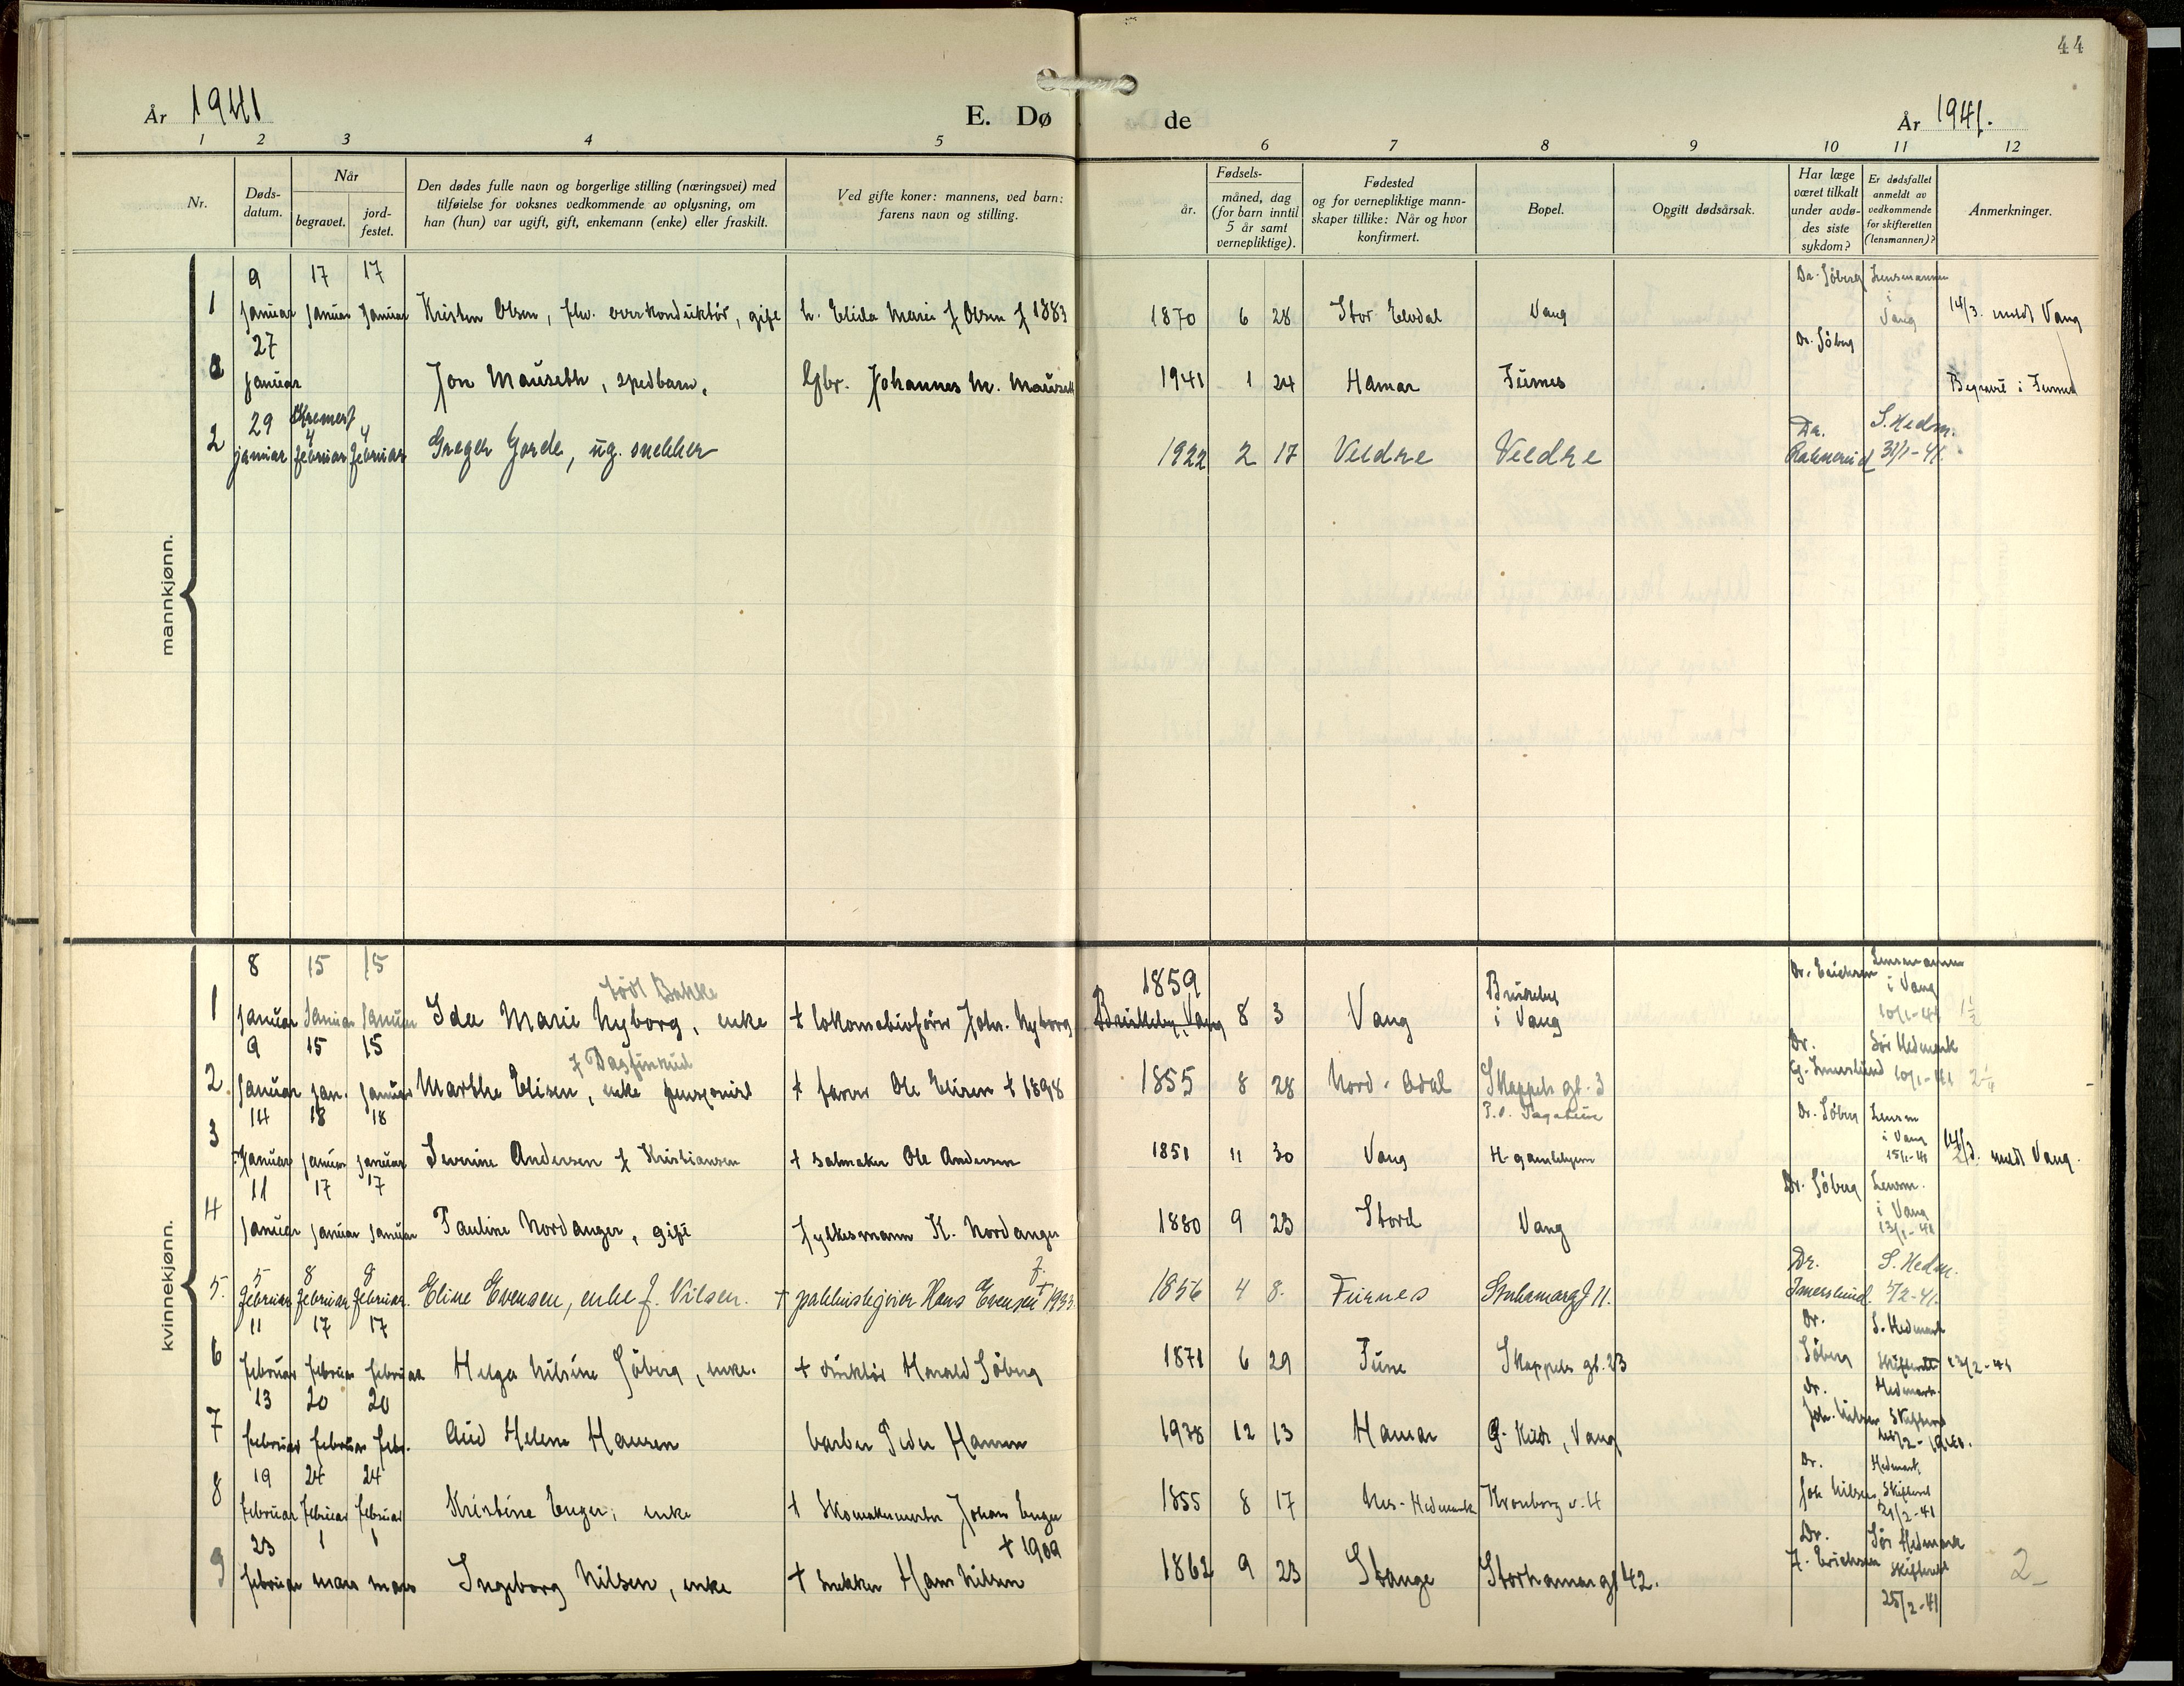 44
År 1941
E. Dø
de
År 1941.
1 2 3 4 5 6 7 8 9 10 11 12
Nr.
Døds-
datum.
Når
begravet.
jord-
festet.
Den dødes fulle navn og borgerlige stilling (næringsvei) med
tilføielse for voksnes vedkommende av oplysning, om
han (hun) var ugift, gift, enkemann (enke) eller fraskilt.
Ved gifte koner: mannens, ved barn:
farens navn og stilling.
Fødsels-
år.
måned, dag
(for barn inntil
5 år samt
vernepliktige).
Fødested
og for vernepliktige mann-
skaper tillike: Når og hvor
konfirmert.
Bopel.
Opgitt dødsårsak.
Har læge
været tilkalt
under avdø-
des siste
sykdom?
Er dødsfallet
anmeldt av
vedkommende
for skifteretten
(lensmannen)?
Anmerkninger.
mannkjønn.
9 17 17 Dr. Söberg Lensmannen
1 januar januar januar Kristen Olsen, fhv. overkonduktör, gift h. Elida Marie f Olsen f 1883 1870 6 28 Stor Elvdal Vang i Vang 14/3. meldt Vang
27 Dr. Söberg
januar Jon Mauseth, spedbarn, Gbr. Johannes M. Mauseth 1941 1 24 Hamar Furnes Begravet i Furnes
29 Kremert 4 4 Dr. S. Hedm.
2 januar februar februar Greger Gorde, ug. snekker 1922 2 17 Veldre Veldre 31/1-41.
kvinnekjønn.
8 15 15 född Bakke 1859 Dr. Erichsen Lensmannen i Vang
1 januar januar januar Ida Marie Nyborg, enke † lokomotivförer Johs. Nyborg Briskeby, Vang 8 3 Vang Briskeby i Vang 10/1-41
9 15 15 f Dagfinrud Dr. Sör Hedmark
2. januar jan. januar Marthe Elisen, enke pensjonist † farver Ole Elisen † 1898 1855 8 28 Nord-Odal Skappels gt. 3 G. Imerslund 10/1-41
14 18 18 Dr. Söberg Lensm i Vang
3 januar januar januar Severine Andersen f Kristiansen † salmaker Ole Andersen 1851 11 30 Vang H-gamlehjem 15/1-41 14/3. meldt Vang.
11 17 17 Dr. Söberg Lensm. i Vang
4 januar januar januar Pauline Nordanger, gift fylkesmann K. Nordanger 1880 9 23 Stord Vang 13/1-41
5 8 8 Dr. S. Hedm.
5. februar februar februar. Eline Evensen, enke f. Nilsen. † Hans Evensen † 1933. 1856 4 8. Furnes Storhamargt 11. Imerslund. 5/2-41.
11 17 17 Dr. S. Hedmark
6 februar februar februar Helga Nilsine Söberg, enke. † direktör Harald Söberg 1871 6 29 Tune Skappels gt. 23 Söberg Skifterett 13/2-41
13 20 20 Dr. Hedmark
7 februar februar febr. Aud Helene Hansen barber Peder Hansen 1938 12 13 Hamar Vang Joh. Nilsen Skifterett
19 24 24 Dr. Hedmark
8 februar februar februar Kristine Enger, enke † Skomakermester Johan Enger 1855 8 17 Nes-Hedmark Kronborg v. 4 Joh Nilsen Skifterett 21/2-41
23 1 1 † 1909 Dr. Sör Hedmark
9 februar mars mars Ingeborg Nilsen, enke † Snekker Hans Nilsen 1862 9 23 Stange Storhamargt 42. Erichsen Skifterett 2
25/2-41